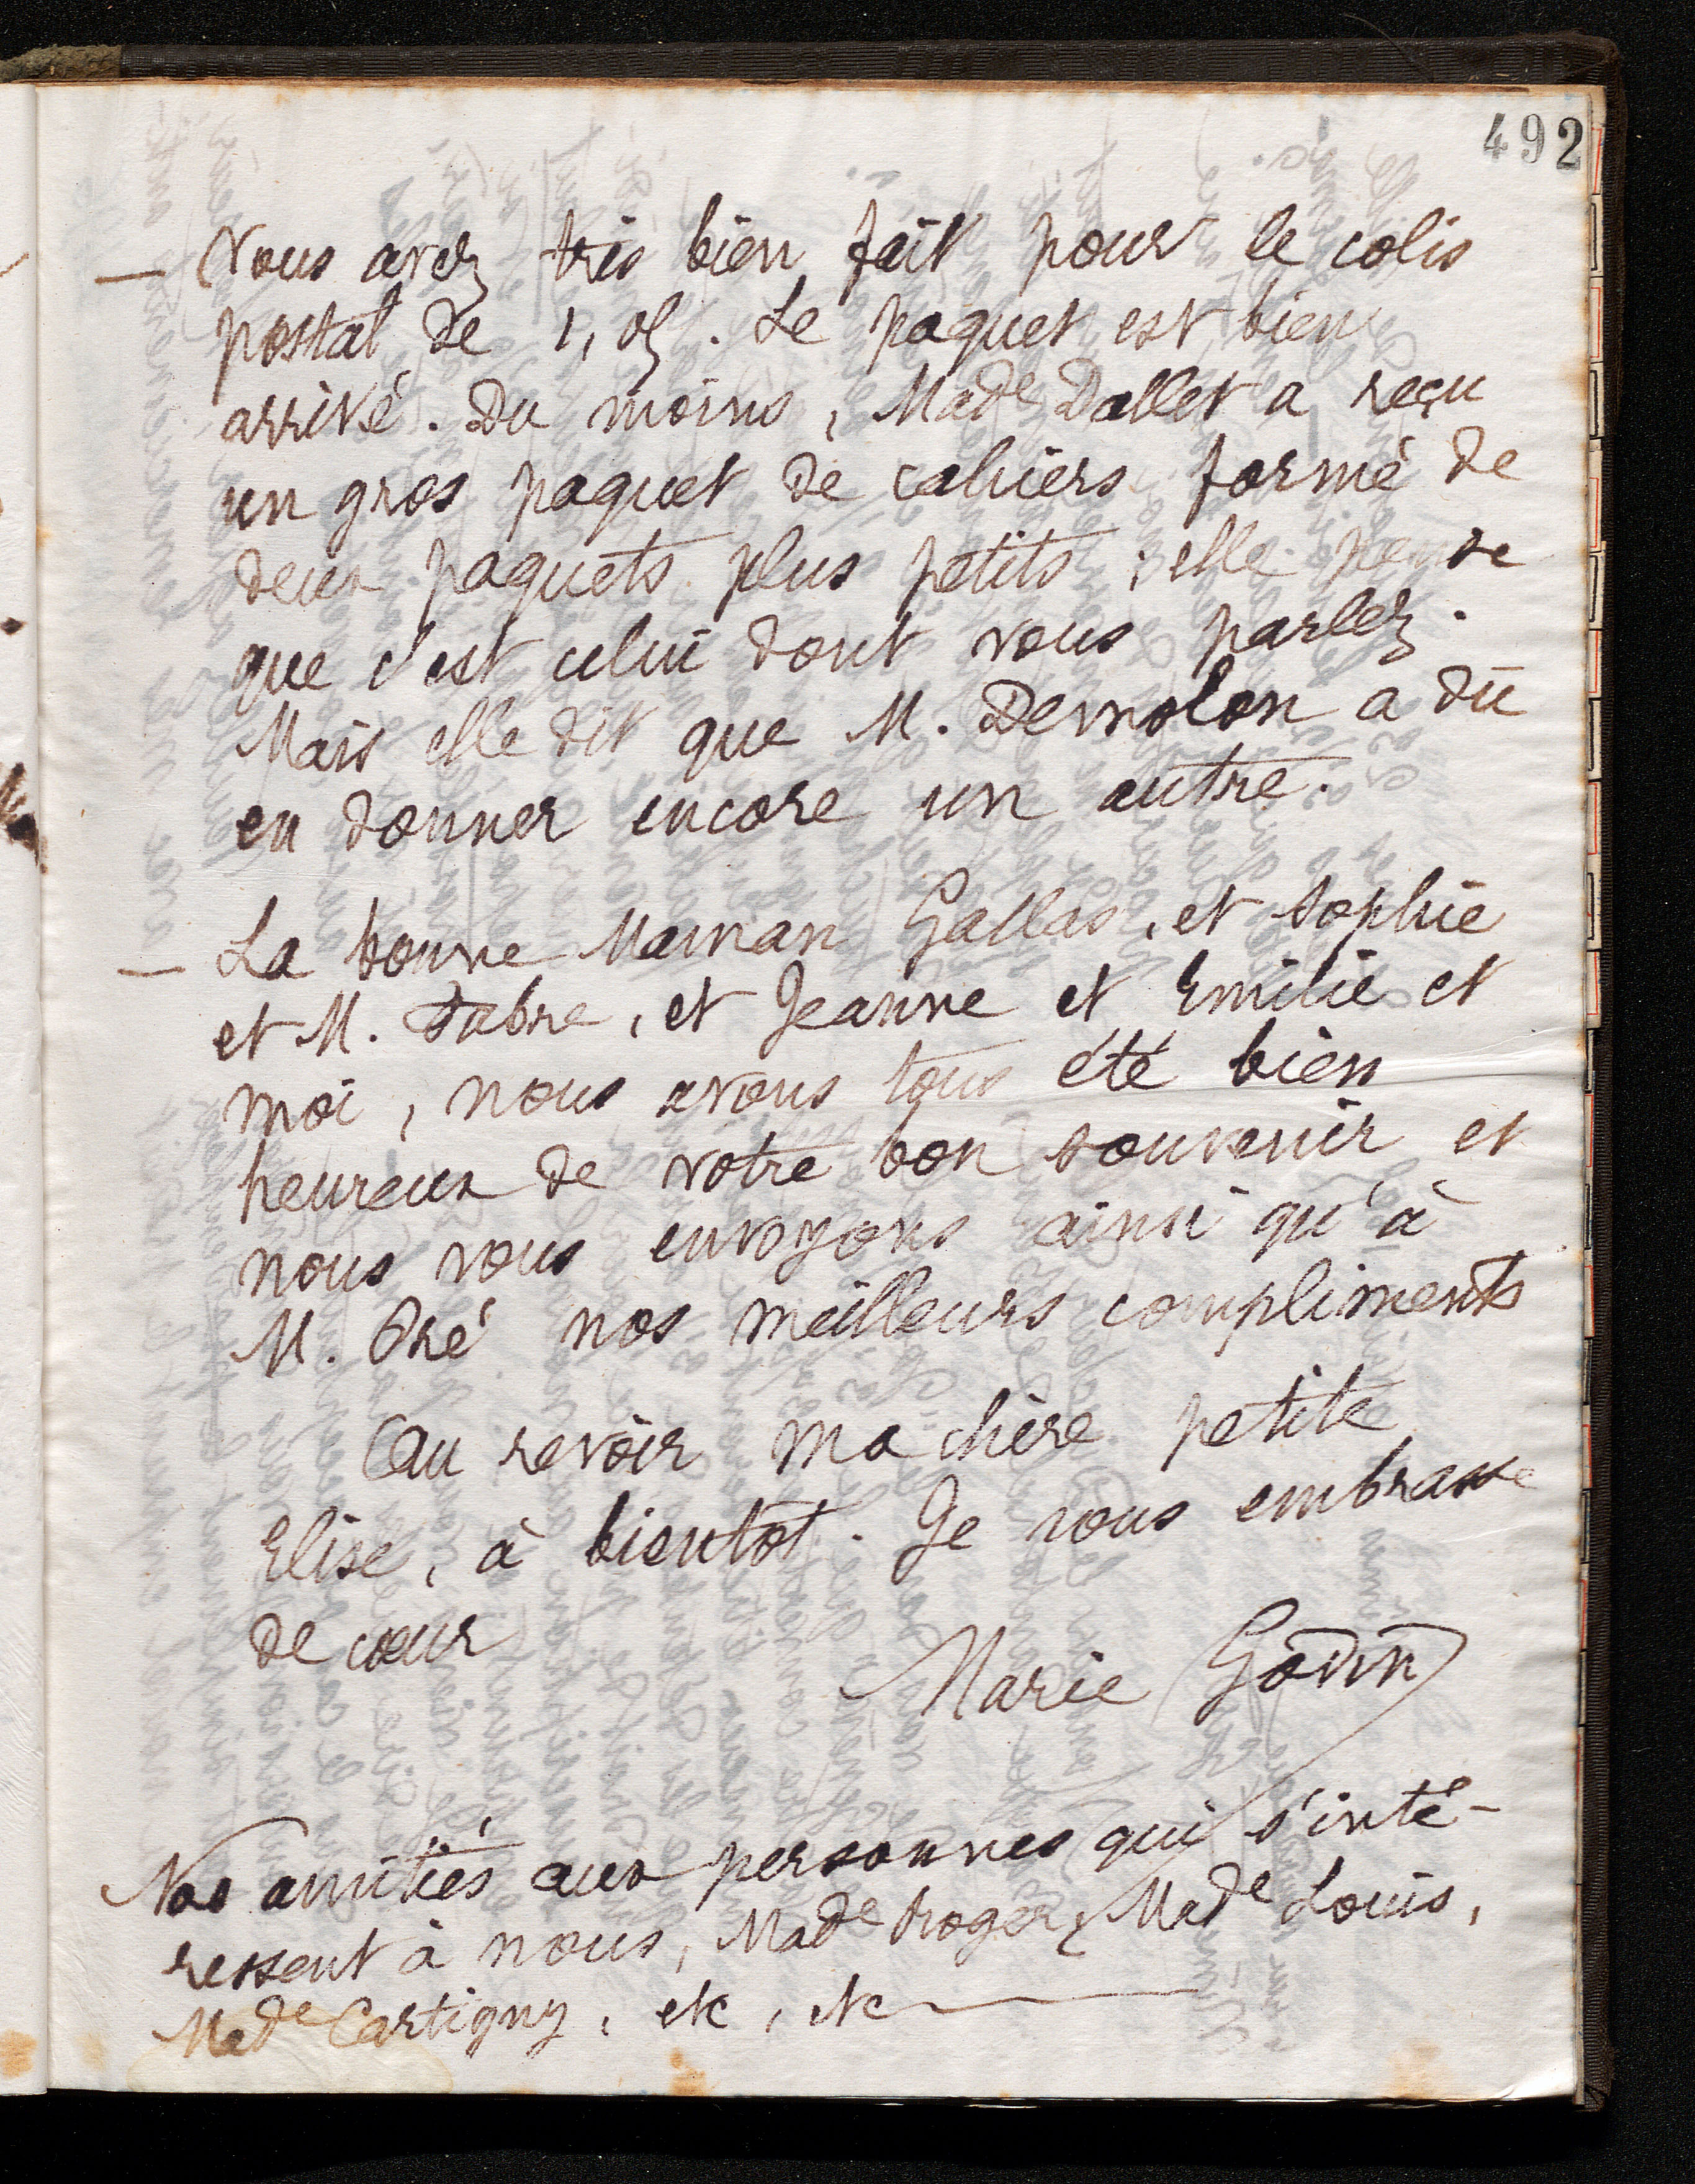 492
— Vous avez très bien fait pour le colis
postal de 1,05. Le paquet est bien
arrivé. Du moins, Made Dallet a reçu
un gros paquet de cahiers formé de
deux paquets plus petits ; elle pense
que c'est celui dont vous parlez.
Mais elle dit que M. Demolon a dû
en donner encore un autre.
— La bonne Maman Gallas, et Sophie
et M. Fabre, et Jeanne et Emilie et
moi, nous avons tous été bien
heureux de votre bon souvenir et
nous vous envoyons ainsi qu'à
M. Pré nos meilleurs compliments
Au revoir ma chère petite
Elise, à bientôt. Je vous embrasse
de cœur
Marie Godin
Nos amitiés aux personnes qui s'inté-
ressent à nous, Made Roger, Made Louis,
Made Cartigny, etc, etc